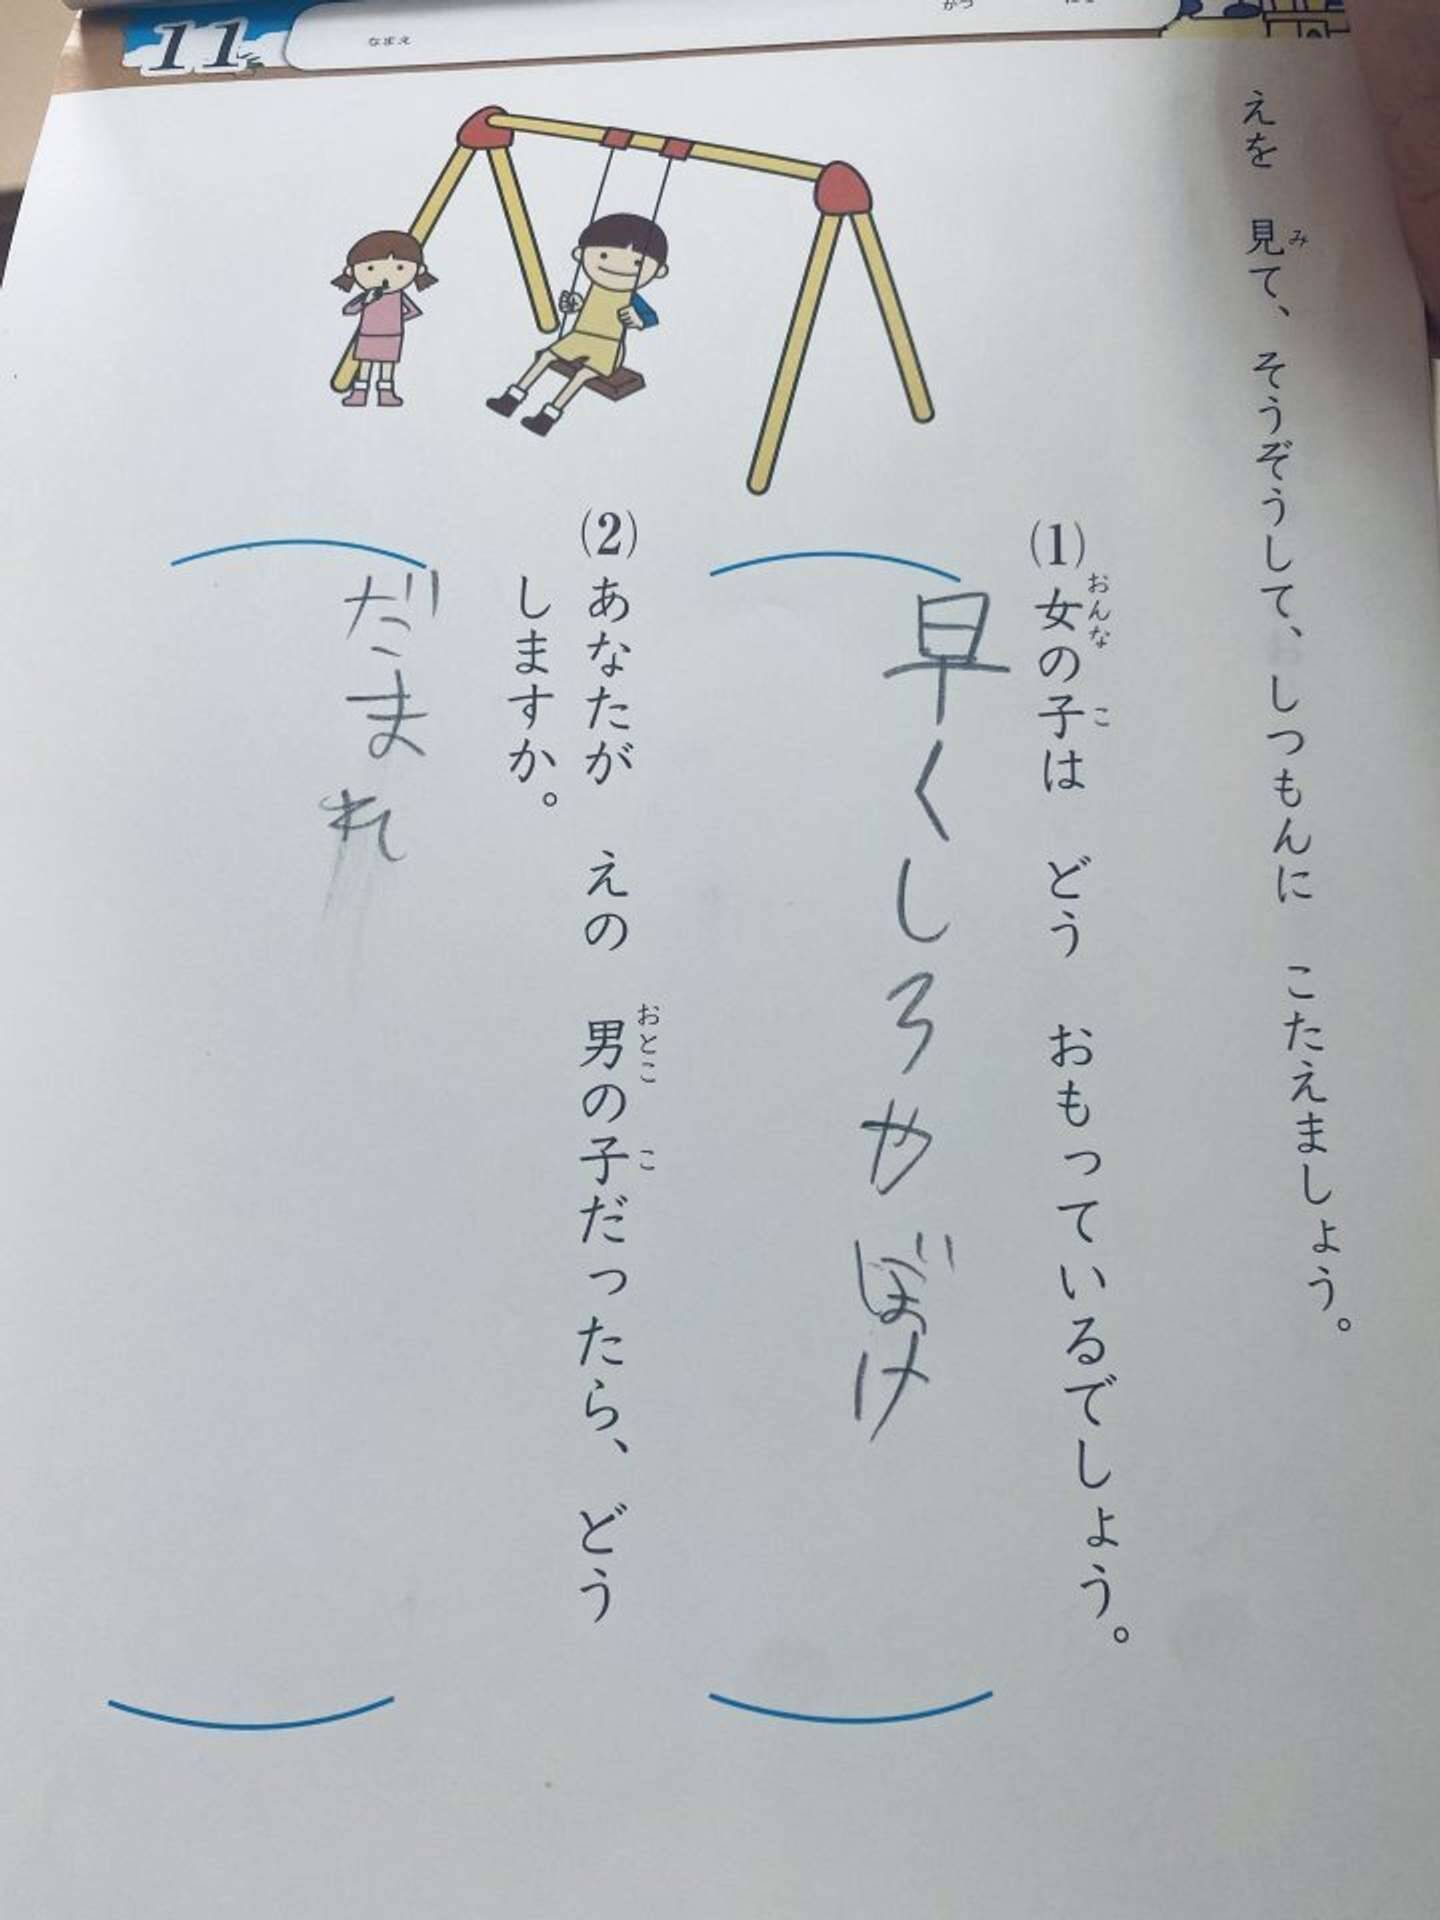 11
なまえ
えを 見て、そうぞうして、しつもんに こたえましょう。
み
(1)女の子は どう おもっているでしょう。
おんな
こ
早くしろやぼけ
(2)あなたが えの 男の子だったら、どう
おとこ
こ
しますか。
だまれ